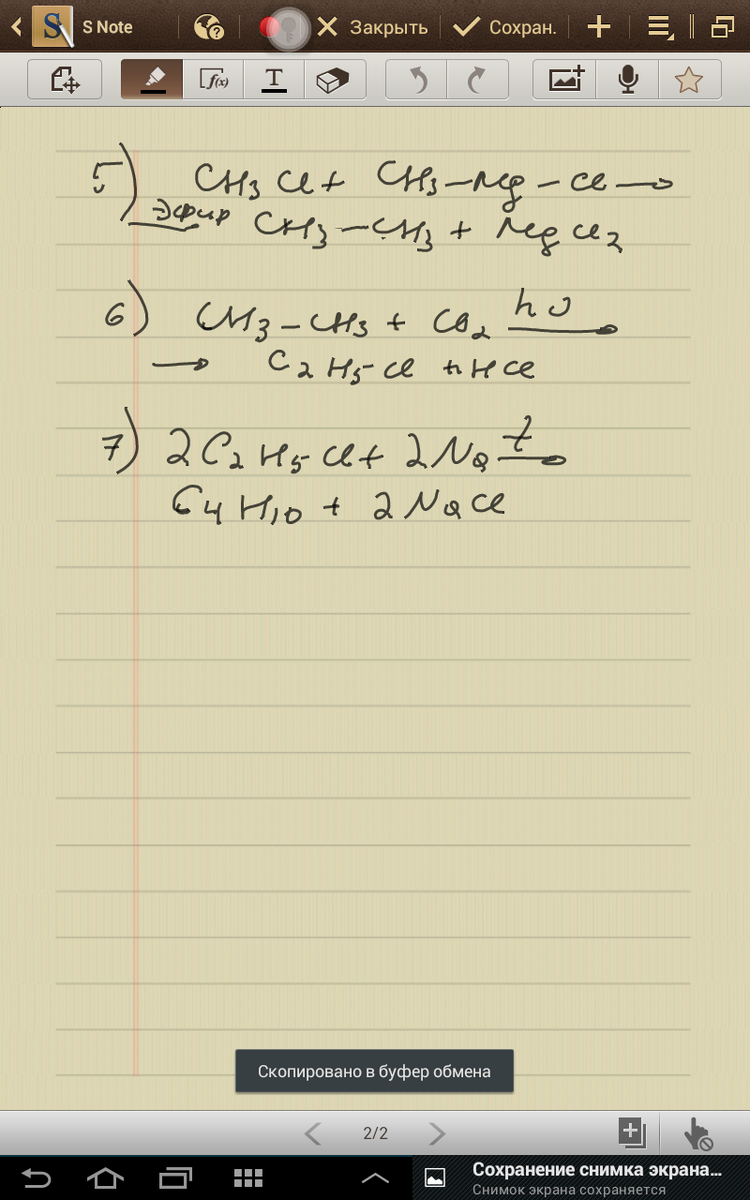 S Note
Закрыть
Сохран.
f(x)
T
5) CH3 Cl + CH3 – Mg – Cl →
эфир CH3 – CH3 + Mg Cl2
6) CH3 – CH3 + Cl2 hυ →
→ C2 H5 Cl + H Cl
7) 2 C2 H5 Cl + 2 Na t →
C4 H10 + 2 Na Cl
Скопировано в буфер обмена
2/2
Сохранение снимка экрана...
Снимок экрана сохраняется